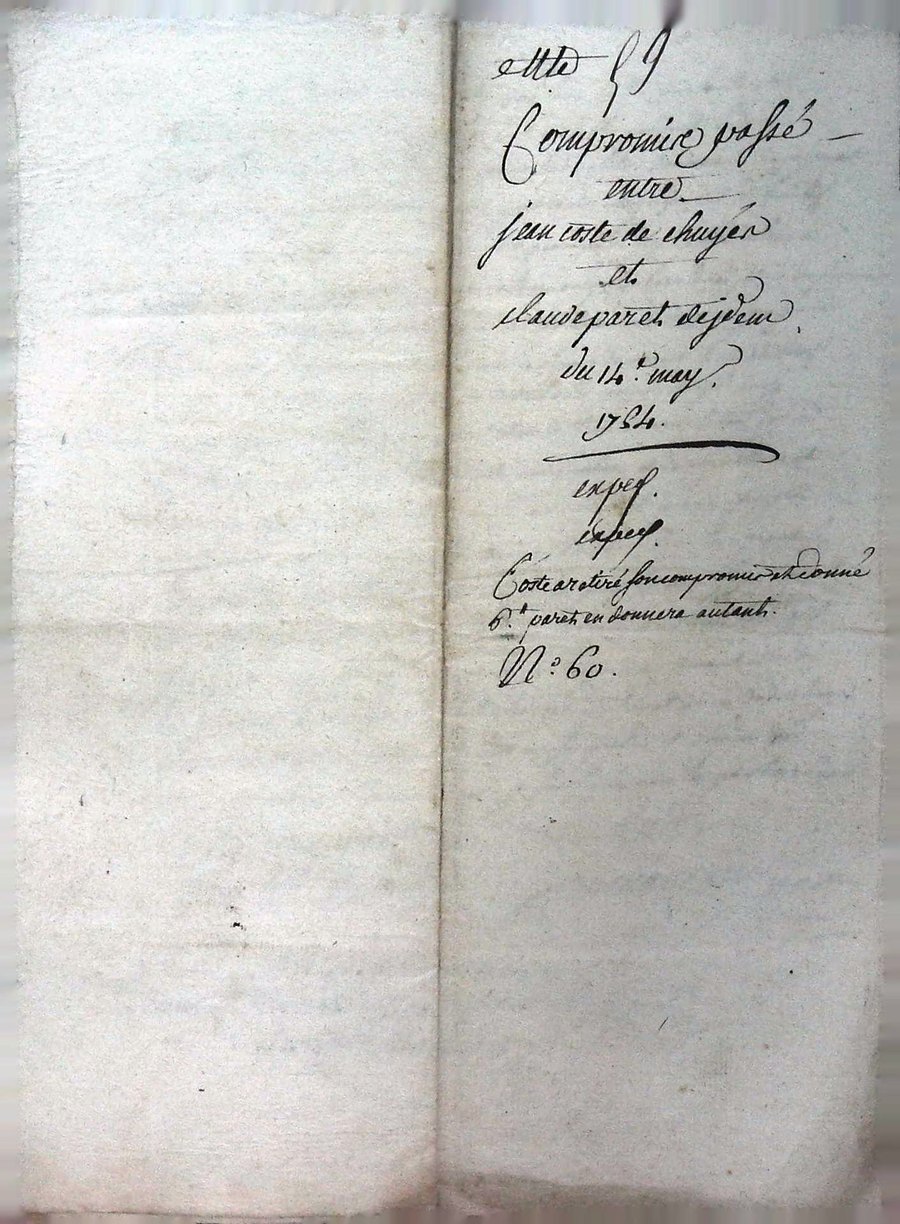 Cotte 59
Compromis passé
entre
jean coste de chuyer
et
claude paret dejdem
du 14.e may
1754.
exped.
exped.
Coste a retiré son compromis et donné
6.# paret en donnera autant.
N.o 60.